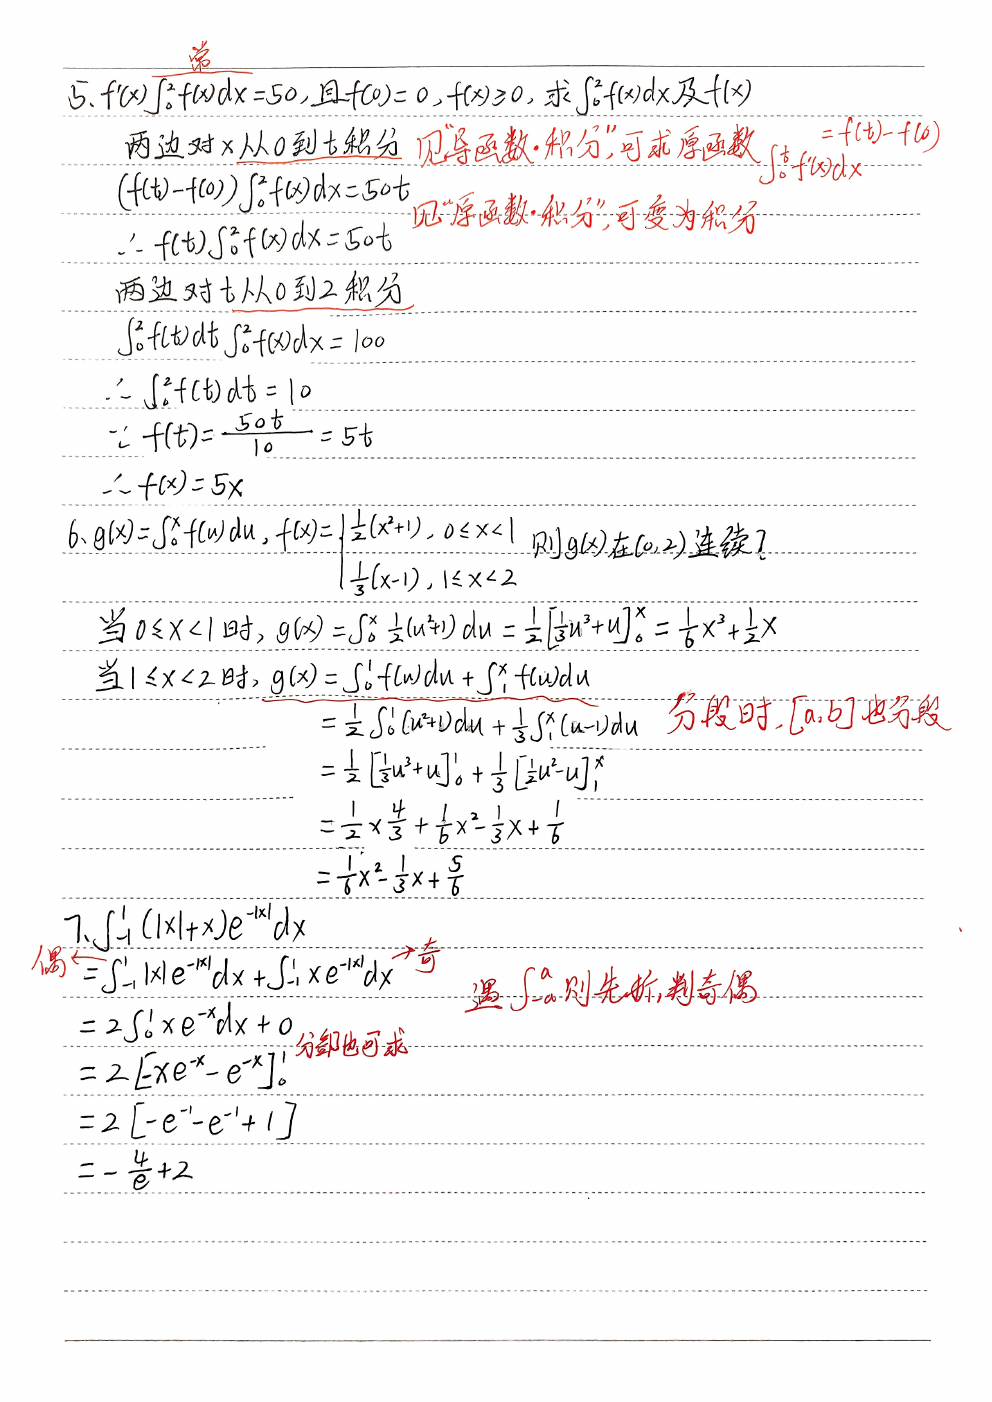 常
5、f'(x)∫₀²f(x)dx=50,且f(0)=0,f(x)≥0,求∫₀²f(x)dx及f(x)
两边对x从0到t积分 见“导函数·积分”,可求原函数 ∫₀ᵗf'(x)dx =f(t)-f(0)
(f(t)-f(0))∫₀²f(x)dx=50t
见“原函数·积分”,可变为积分
∴ f(t)∫₀²f(x)dx=50t
两边对t从0到2积分
∫₀²f(t)dt∫₀²f(x)dx=100
∴ ∫₀²f(t)dt=10
∵ f(t)=50t/10=5t
∴ f(x)=5x
6、g(x)=∫₀ˣf(u)du,f(x)={1/2(x²+1), 0≤x<1 则g(x)在(0,2)连续?
1/3(x-1), 1≤x<2
当0≤x<1时,g(x)=∫₀ˣ1/2(u²+1)du=1/2[1/3u³+u]₀ˣ=1/6x³+1/2x
当1≤x<2时,g(x)=∫₀¹f(u)du+∫₁ˣf(u)du
=1/2∫₀¹(u²+1)du+1/3∫₁ˣ(u-1)du 分段时,[a,b]也分段
=1/2[1/3u³+u]₀¹+1/3[1/2u²-u]₁ˣ
=1/2×4/3+1/6x²-1/3x+1/6
=1/6x²-1/3x+5/6
7、∫₋₁¹(|x|+x)e^(-|x|)dx
偶← =∫₋₁¹|x|e^(-|x|)dx+∫₋₁¹xe^(-|x|)dx →奇
遇∫₋ₐᵃ则先拆,判奇偶
=2∫₀¹xe^(-x)dx+0
分部也可求
=2[-xe^(-x)-e^(-x)]₀¹
=2[-e⁻¹-e⁻¹+1]
=-4/e+2